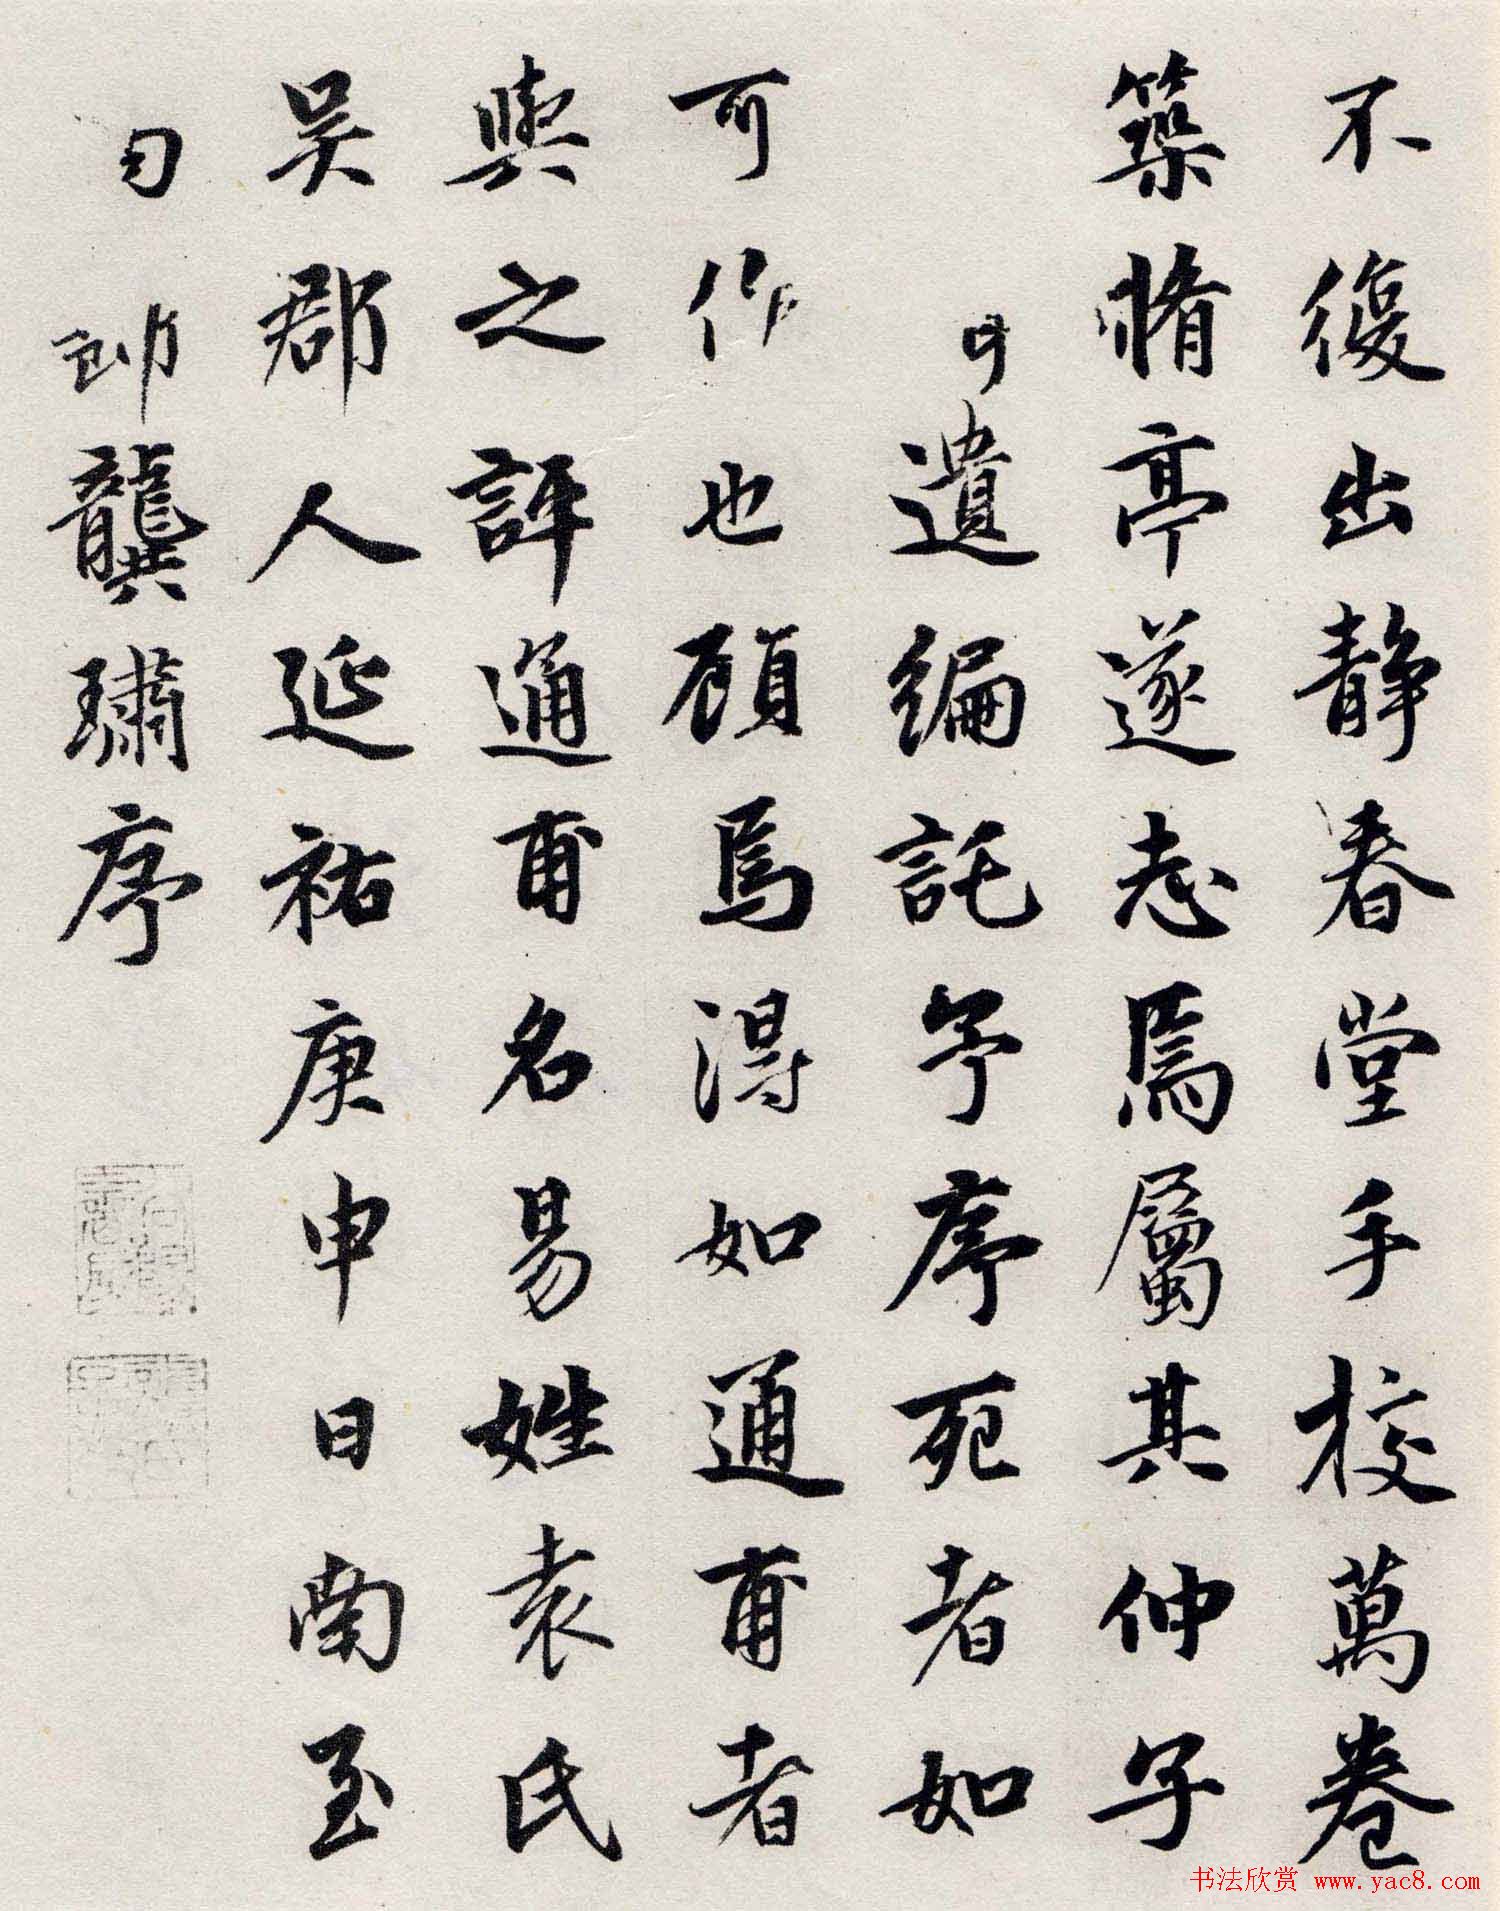 不復出静春堂手校萬卷
築脩亭遂志焉屬其仲子
遺編託予序死者如
可作也顧焉得如通甫者
與之評通甫名易姓袁氏
吴郡人延祐庚申日南至
龔璛序
书法欣赏 www.yac8.com